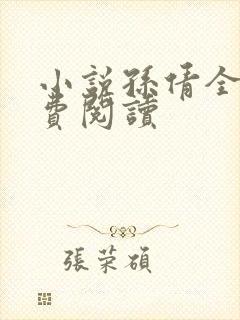 小說孫倩全
費閱讀
張荣碩